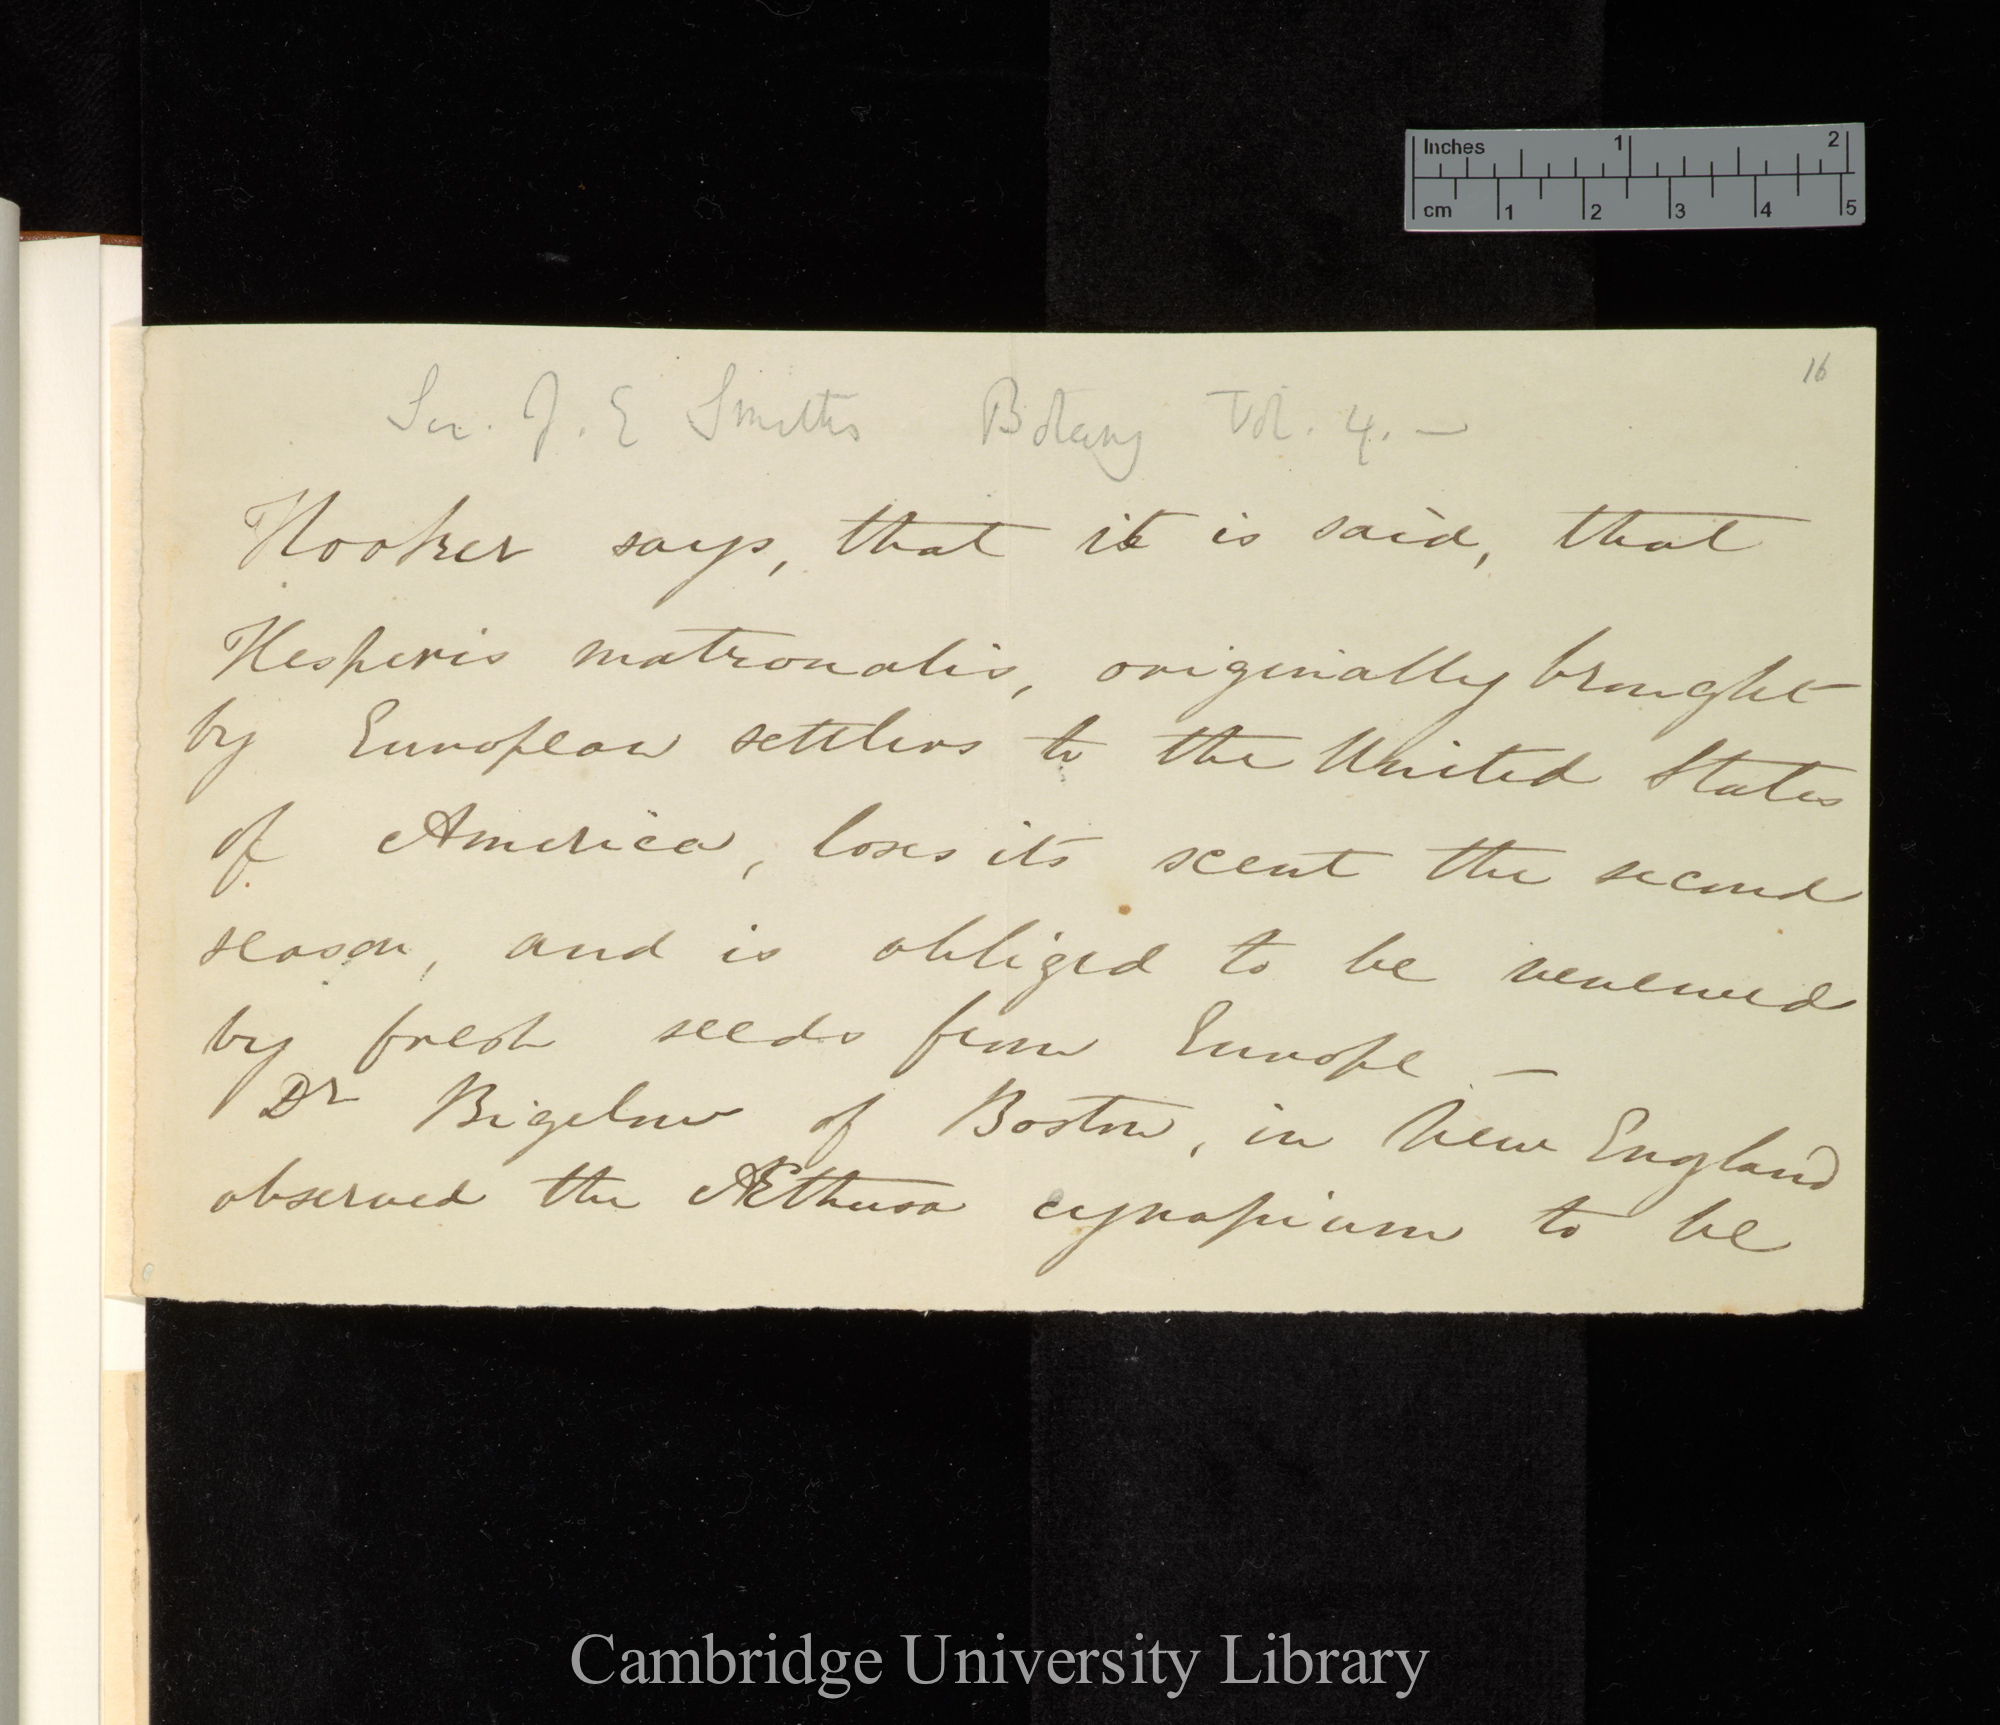 Inches 1 2
cm 1 2 3 4 5
16
Sir. J. E Smiths Botany Vol. 4. —
Hooker says, that it is said, that
Hesperis matronalis, originally brought
by European settlers to the United States
of America, loses its scent the second
season, and is obliged to be renewed
by fresh seeds from Europe —
Dr Bigelow of Boston, in New England
observed the Æthusa cynapium to be
Cambridge University Library